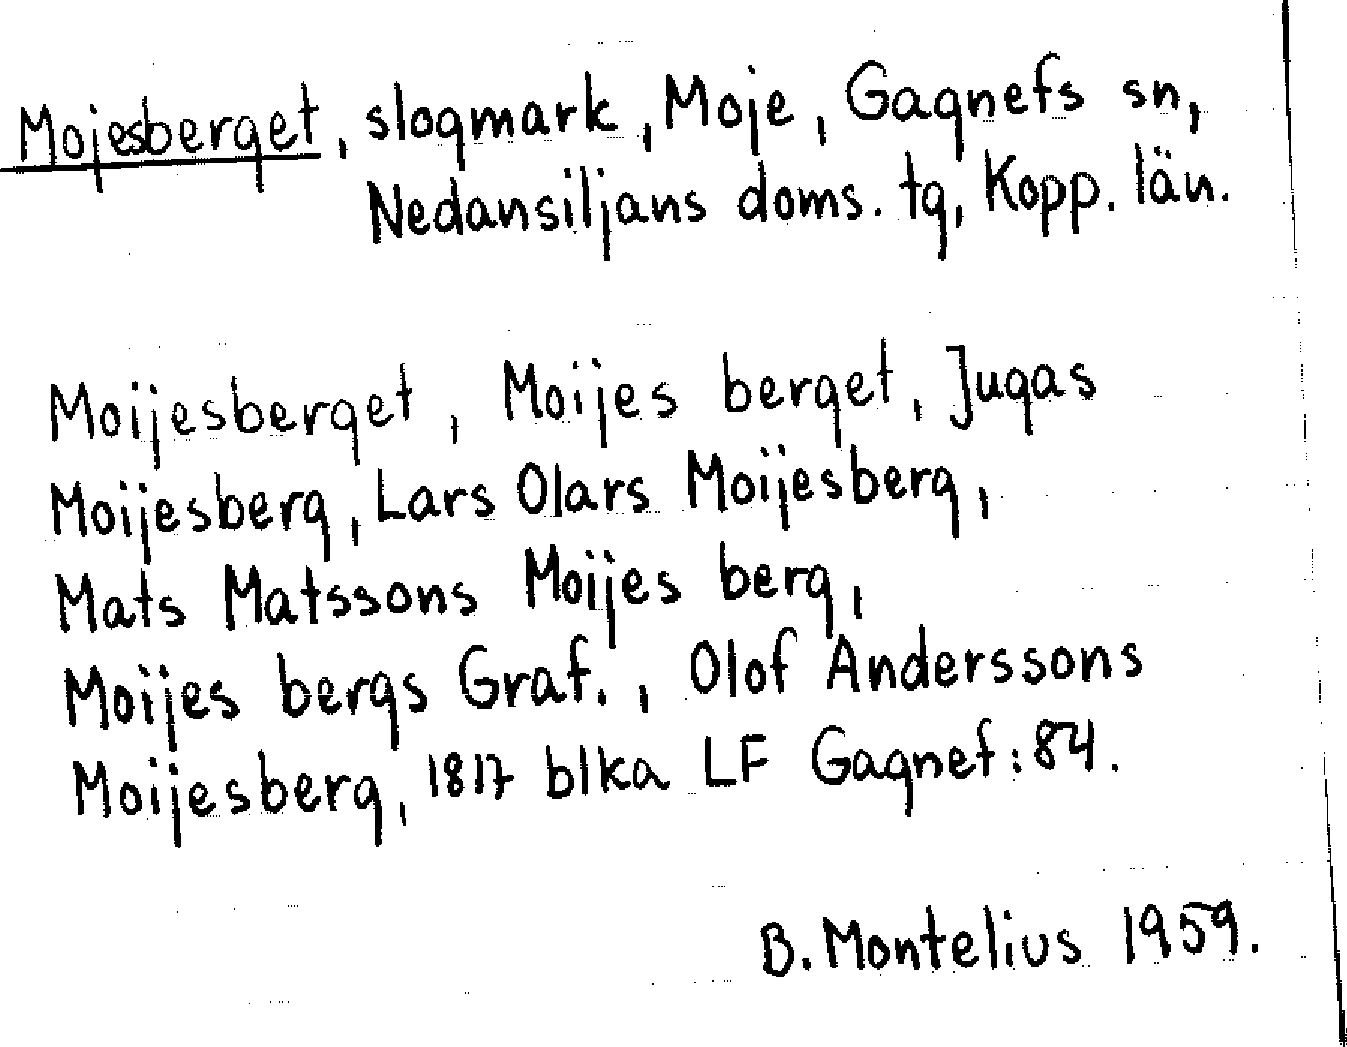 Mojesberget, slogmark, Moje, Gagnefs sn,
Nedansiljans doms. tg, Kopp. län.
Moijesberget, Moijes berget, Jugas
Moijesberg, Lars Olars Moijesberg,
Mats Matssons Moijes berg,
Moijes bergs Graf., Olof Anderssons
Moijesberg, 1817 blka LF Gagnef:84.
B. Montelius 1959.